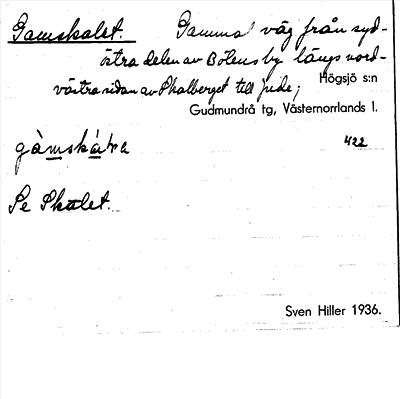 Gamskalet. Gammal väg från syd-
östra delen av Bölens by längs nord-
västra sidan av Skalberget till Inde;
Högsjö s:n
Gudmundrå tg, Västernorrlands l.
gàmskálta 422
Se Skalet.
Sven Hiller 1936.